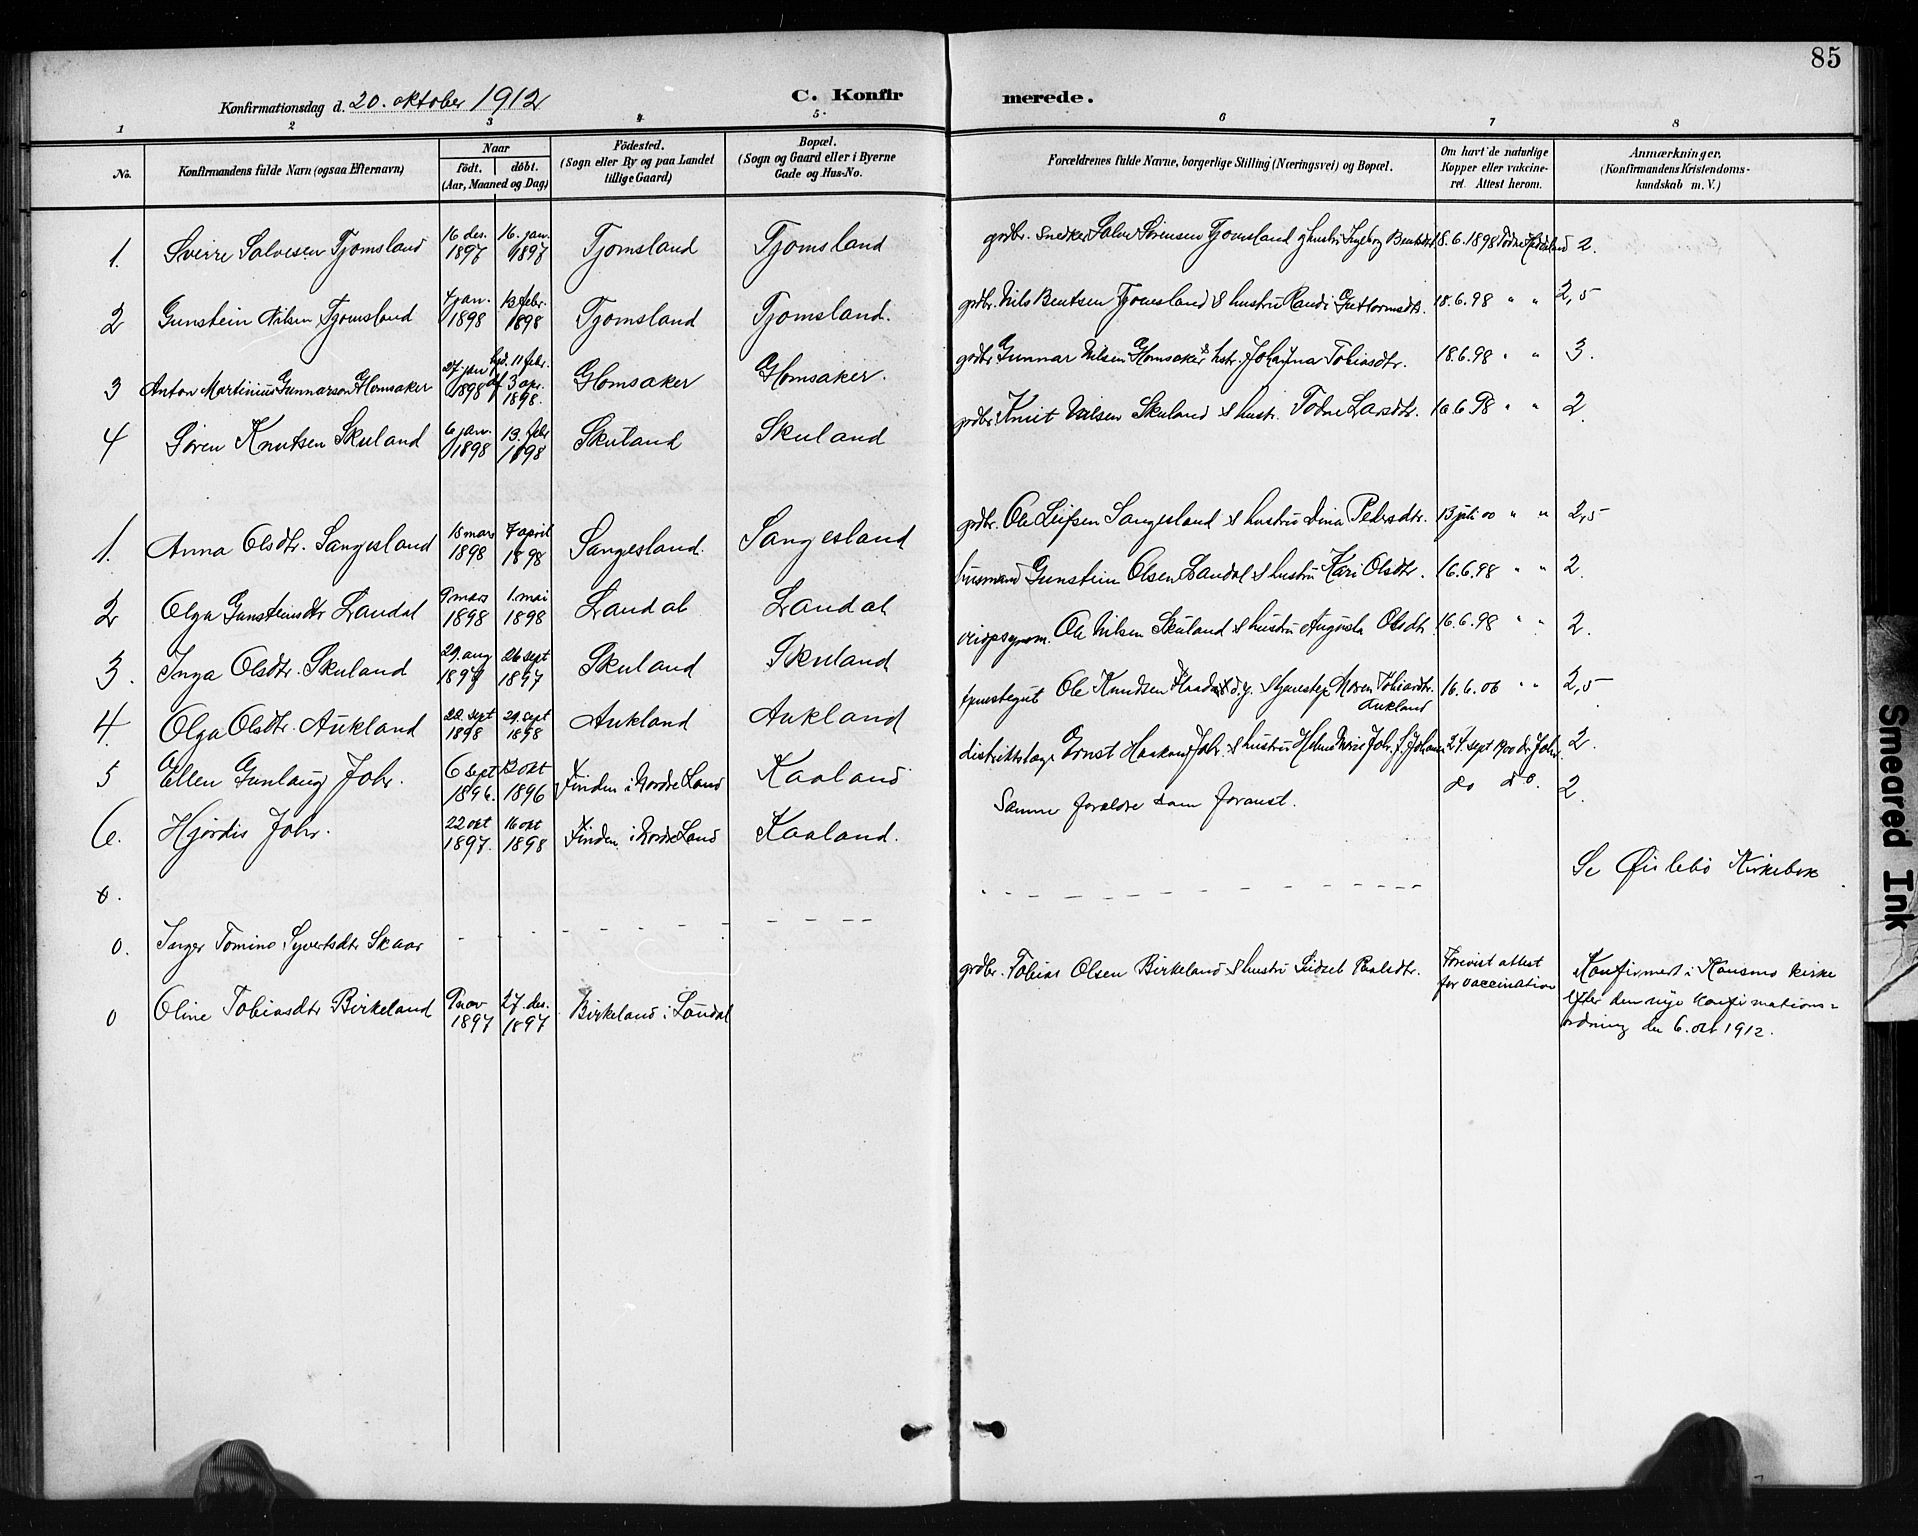 85
Konfirmationsdag d. 20. oktober 1912
C. Konfirmerede.
1 2 3 4 5. 6 7 8
No.
Konfirmandens fulde Navn (ogsaa Efternavn)
Naar
födt. döbt.
(Aar, Maaned og Dag)
Födested.
(Sogn eller By og paa Landet
tillige Gaard)
Bopæl.
(Sogn og Gaard eller i Byerne
Gade og Hus-No.
Forældrenes fulde Navne, borgerlige Stilling (Næringsvei) og Bopæl.
Om havt de naturlige
Kopper eller vakcine-
ret. Attest herom.
Anmærkninger.
(Konfirmandens Kristendoms-
kundskab m. V.)
1. Sverre Salvesen Tjomsland 16 des. 1897 16. jan. 1898 Tjomsland Tjomsland grdbr. snedker Salve Sörensen Tjomsland & hustru Ingeborg 18.6.1898 2.
2 Gunstein Nilsen Tjomsland 4 jan. 1898 13 febr. 1898 Tjomsland Tjomsland. grdbr. Nils Bentsen Tjomsland & hustru Randi Guttormsdtr. 18.6.98 " " 2,5
3 Anton Martinius Gunnarson Homsaker 27. jan 1898 11 febr. 3 apr. 1898. Homsaker Homsaker. grdbr Gunnar Nilsen Homsaker & hstr. Johanna Tobiasdtr. 18.6.98 " " 3.
4 Sören Knutsen Skuland 6 jan. 1898 13. febr 1898 Skuland Skuland grdbr. Knut Nilsen Skuland & hustr. Todne Larsdtr. 16.6.98 " " 2.
1. Anna Olsdtr. Sangesland 18 mars 1898 7 april 1898 Sangesland. Sangesland grdbr. Ole Leifsen Sangesland & hustru Dina Pedersdtr. 13 juli 00 " " 2,5
2 Olga Gunsteinsdtr Landal 9 mars 1898 1. mai 1898 Landal Landal husmand Gunstein Olsen Landal & hustru Kari Olsdtr. 16.6.98 " " 2.
3. Inga Olsdtr. Skuland 29. aug 1897 26 sept 1897 Skuland Skuland Ole Nilsen Skuland & hustru Augusta Olsdtr. 16.6.98 " " 2.
4. Olga Olsdtr. Aukland 22. sept 1898 29. sept 1898 Aukland Aukland Ole Knudsen d.y. & Maren Tobiasdtr. Aukland 16.6.06 " " 2,5
5 Ellen Gunlaug Johr. 6 sept 1896. 12 okt 1896 Finden i Nordre Land Kaaland distriktslæge Ernst Haakon Johr. & hustru 24. sept 1900 dr Johr. 2.
6. Hjördis Johr. 22 okt 1897. 16 okt 1898 Finden i Nordre Land Kaaland. Samme forældre som foranst. do do. 2.
0.
0. Inger Tomine Syvertsdtr Skaar Se Öislebö Kirkebok
0 Oline Tobiasdtr Birkeland 9 nov 1897 27. des. 1897 Birkeland i Laudal grdbr. Tobias Olsen Birkeland & hustru Sidsel Paalsdtr. Forevist attest
for vaccination Konfirmert i Konsmo kirke
efter den nye konfirmations=
ordning den 6. okt 1912.
Smeared Ink